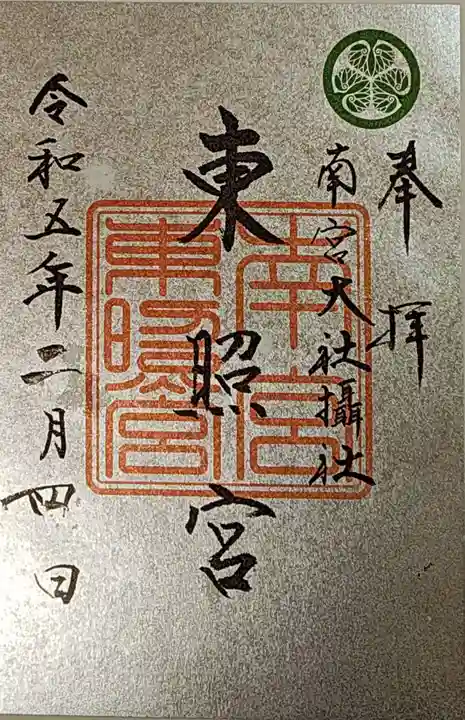 奉拝
南宮大社攝社
東照宮
南宮
東照宮
令和五年二月四日